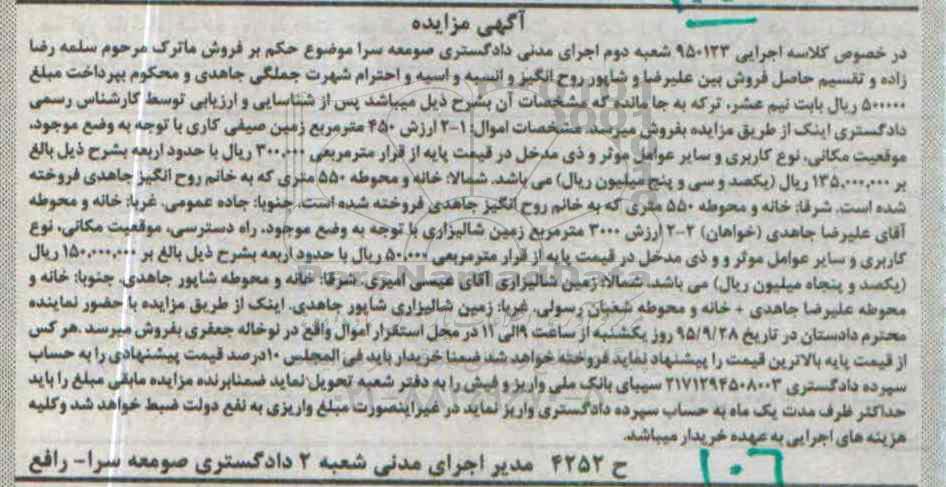 آگهی مزایده
در خصوص کلاسه اجرایی ۹۵۰۱۲۳ شعبه دوم اجرای مدنی دادگستری صومعه سرا موضوع حکم بر فروش ماترک مرحوم سلمه رضا
زاده و تقسیم حاصل فروش بین علیرضا و شاپور روح انگیز و انسیه و اسیه و احترام شهرت جملگی جاهدی و محکوم بپرداخت مبلغ
۵۰۰۰۰۰ ریال بابت نیم عشر، ترکه به جا مانده که مشخصات آن بشرح ذیل میباشد پس از شناسایی و ارزیابی توسط کارشناس رسمی
دادگستری اینک از طریق مزایده بفروش میرسد. مشخصات اموال: ۱-۲ ارزش ۴۵۰ مترمربع زمین صیفی کاری با توجه به وضع موجود،
موقعیت مکانی، نوع کاربری و سایر عوامل موثر و ذی مدخل در قیمت پایه از قرار مترمربعی ۳۰۰,۰۰۰ ریال با حدود اربعه بشرح ذیل بالغ
بر ۱۳۵,۰۰۰,۰۰۰ ریال (یکصد و سی و پنج میلیون ریال) می باشد. شمالا: خانه و محوطه ۵۵۰ متری که به خانم روح انگیز جاهدی فروخته
شده است. شرقا: خانه و محوطه ۵۵۰ متری که به خانم روح انگیز جاهدی فروخته شده است. جنوبا: جاده عمومی. غربا: خانه و محوطه
آقای علیرضا جاهدی (خواهان) ۲-۲ ارزش ۳۰۰۰ مترمربع زمین شالیزاری با توجه به وضع موجود، راه دسترسی، موقعیت مکانی، نوع
کاربری و سایر عوامل موثر و و ذی مدخل در قیمت پایه از قرار مترمربعی ۵۰,۰۰۰ ریال با حدود اربعه بشرح ذیل بالغ بر ۱۵۰,۰۰۰,۰۰۰ ریال
(یکصد و پنجاه میلیون ریال) می باشد. شمالا: زمین شالیزاری آقای عیسی امیزی. شرقا: خانه و محوطه شاپور جاهدی. جنوبا: خانه و
محوطه علیرضا جاهدی + خانه و محوطه شعبان رسولی. غربا: زمین شالیزاری شاپور جاهدی. اینک از طریق مزایده با حضور نماینده
محترم دادستان در تاریخ ۹۵/۹/۲۸ روز یکشنبه از ساعت ۹الی ۱۱ در محل استقرار اموال واقع در نوخاله جعفری بفروش میرسد.هر کس
از قیمت پایه بالاترین قیمت را پیشنهاد نماید فروخته خواهد شد ضمنا خریدار باید فی المجلس ۱۰درصد قیمت پیشنهادی را به حساب
سپرده دادگستری ۲۱۷۱۲۹۴۵۰۸۰۰۳ سیبای بانک ملی واریز و فیش را به دفتر شعبه تحویل نماید ضمنابرنده مزایده مابقی مبلغ را باید
حداکثر ظرف مدت یک ماه به حساب سپرده دادگستری واریز نماید در غیراینصورت مبلغ واریزی به نفع دولت ضبط خواهد شد وکلیه
هزینه های اجرایی به عهده خریدار میباشد.
ح ۴۲۵۲ مدیر اجرای مدنی شعبه ۲ دادگستری صومعه سرا- رافع
۱۰۶
ParsNamadData